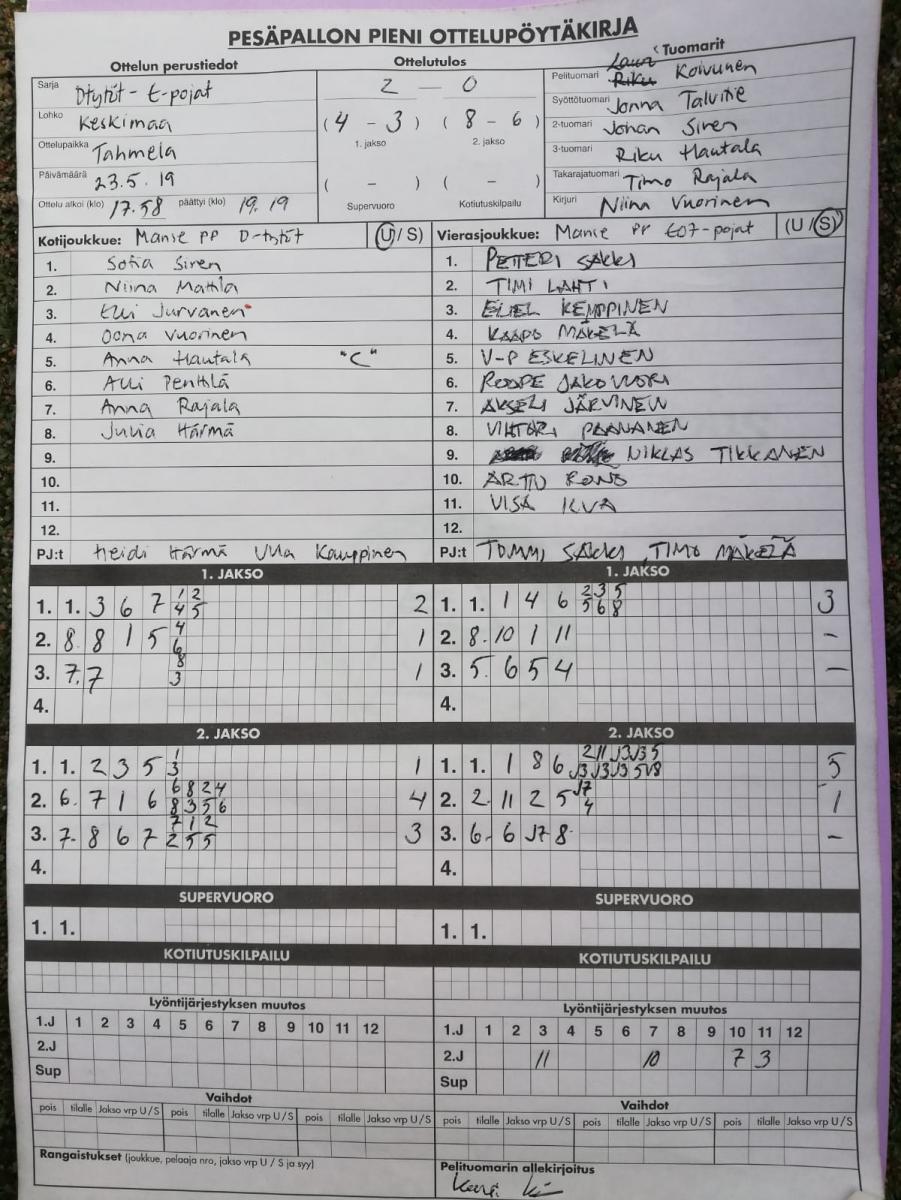 PESÄPALLON PIENI OTTELUPÖYTÄKIRJA
Ottelun perustiedot Ottelutulos Tuomarit
Sarja Dtytöt - E-pojat
Lohko Keskimaa
Ottelupaikka Tahmela
Päivämäärä 23.5.19
Ottelu alkoi (klo) 17.58 päättyi (klo) 19.19
2 — 0
(4 - 3) (8 - 6)
1. jakso 2. jakso
( - ) ( - )
Supervuoro Kotiutuskilpailu
Pelituomari Riku Koivunen
Syöttötuomari Jonna Talvitie
2-tuomari Johan Siren
3-tuomari Riku Hautala
Takarajatuomari Timo Rajala
Kirjuri Niina Vuorinen
Kotijoukkue: Manse PP D-tytöt (U/S)
1. Sofia Siren
2. Niina Mattila
3. Elli Jurvanen
4. Oona Vuorinen
5. Anna Hautala "C"
6. Alli Penttilä
7. Anna Rajala
8. Julia Härmä
9.
10.
11.
12.
PJ:t Heidi Härmä Ulla Kauppinen
Vierasjoukkue: Manse PP E07-pojat (U/S)
1. PETTERI SAKKI
2. TIMI LAHTI
3. ELIEL KEMPPINEN
4. KAAPO MÄKELÄ
5. V-P ESKELINEN
6. ROOPE JAKOVUORI
7. AKSELI JÄRVINEN
8. VIHTORI PAANANEN
9. NIKLAS TIKKANEN
10. ARTTU
11. VISA
12.
PJ:t TOMMI SAKKI, TIMO MÄKELÄ
1. JAKSO
1. 1. 3 6 7 1 2 2
4 5
2. 8. 8 1 5 4 1
6
3. 7. 7 8 1
3
4.
1. JAKSO
1. 1. 1 4 6 2 3 5 3
5 6 8
2. 8. 10 1 11 -
3. 5. 6 5 4 -
4.
2. JAKSO
1. 1. 2 3 5 1 1
3
2. 6. 7 1 6 6 8 2 4 4
8 3 5 6
3. 7. 8 6 7 7 1 2 3
2 5 5
4.
2. JAKSO
1. 1. 1 8 6 2 11 J3 J3 5 5
J3 J3 J3 5 8
2. 2. 11 2 5 J7 1
4
3. 6. 6 J7 8 -
4.
SUPERVUORO
1. 1.
SUPERVUORO
1. 1.
KOTIUTUSKILPAILU
KOTIUTUSKILPAILU
Lyöntijärjestyksen muutos
1.J 1 2 3 4 5 6 7 8 9 10 11 12
2.J
Sup
Lyöntijärjestyksen muutos
1.J 1 2 3 4 5 6 7 8 9 10 11 12
2.J 11 10 7 3
Sup
Vaihdot
pois tilalle Jakso vrp U/S pois tilalle Jakso vrp U/S pois tilalle Jakso vrp U/S
Vaihdot
pois tilalle Jakso vrp U/S pois tilalle Jakso vrp U/S pois tilalle Jakso vrp U/S
Rangaistukset (joukkue, pelaaja nro, jakso vrp U / S ja syy)
Pelituomarin allekirjoitus